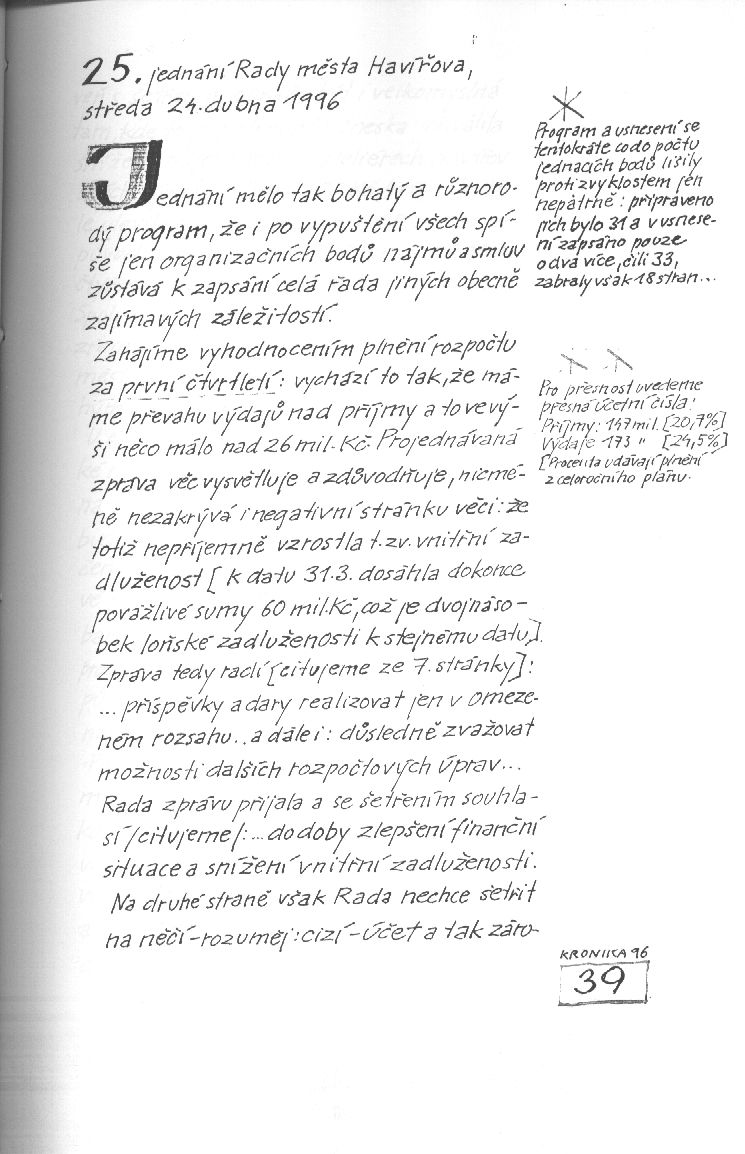 25. jednání Rady města Havířova,
středa 24. dubna 1996
Jednání mělo tak bohatý a různoro-
dý program, že i po vypuštění všech spí-
še jen organizačních bodů nájmů a smluv
zůstává k zapsání celá řada jiných obecně
zajímavých záležitostí.
Zahájíme vyhodnocením plnění rozpočtu
za první čtvrtletí: vychází to tak, že má-
me převahu výdajů nad příjmy a to ve vý-
ši něco málo nad 26 mil. Kč. Projednávaná
zpráva věc vysvětluje a zdůvodňuje, nicmé-
ně nezakrývá i negativní stránku věci: že
totiž nepříjemně vzrostla t.zv. vnitřní za-
dluženost [k datu 31.3. dosáhla dokonce
povážlivé sumy 60 mil. Kč, což je dvojnáso-
bek loňské zadluženosti k stejnému datu].
Zpráva tedy radí [citujeme ze 7. stránky]:
... příspěvky a dary realizovat jen v omeze-
ném rozsahu.. a dále i: důsledně zvažovat
možnosti dalších rozpočtových úprav...
Rada zprávu přijala a se šetřením souhla-
sí /citujeme/: ... do doby zlepšení finanční
situace a snížení vnitřní zadluženosti.
Na druhé straně však Rada nechce šetřit
na něčí - rozuměj: cizí - účet a tak záro-
Program a usnesení se
tentokráte co do počtu
jednacích bodů lišily
proti zvyklostem jen
nepatrně: připraveno
jich bylo 31 a v usnese-
ní zapsáno pouze
o dva více, čili 33,
zabraly však 18 stran...
Pro přesnost uvedeme
přesná účetní čísla:
Příjmy: 147 mil. [20,7%]
Výdaje 173 " [24,5%]
[Procenta udávají plnění
z celoročního plánu.
KRONIKA 96
39